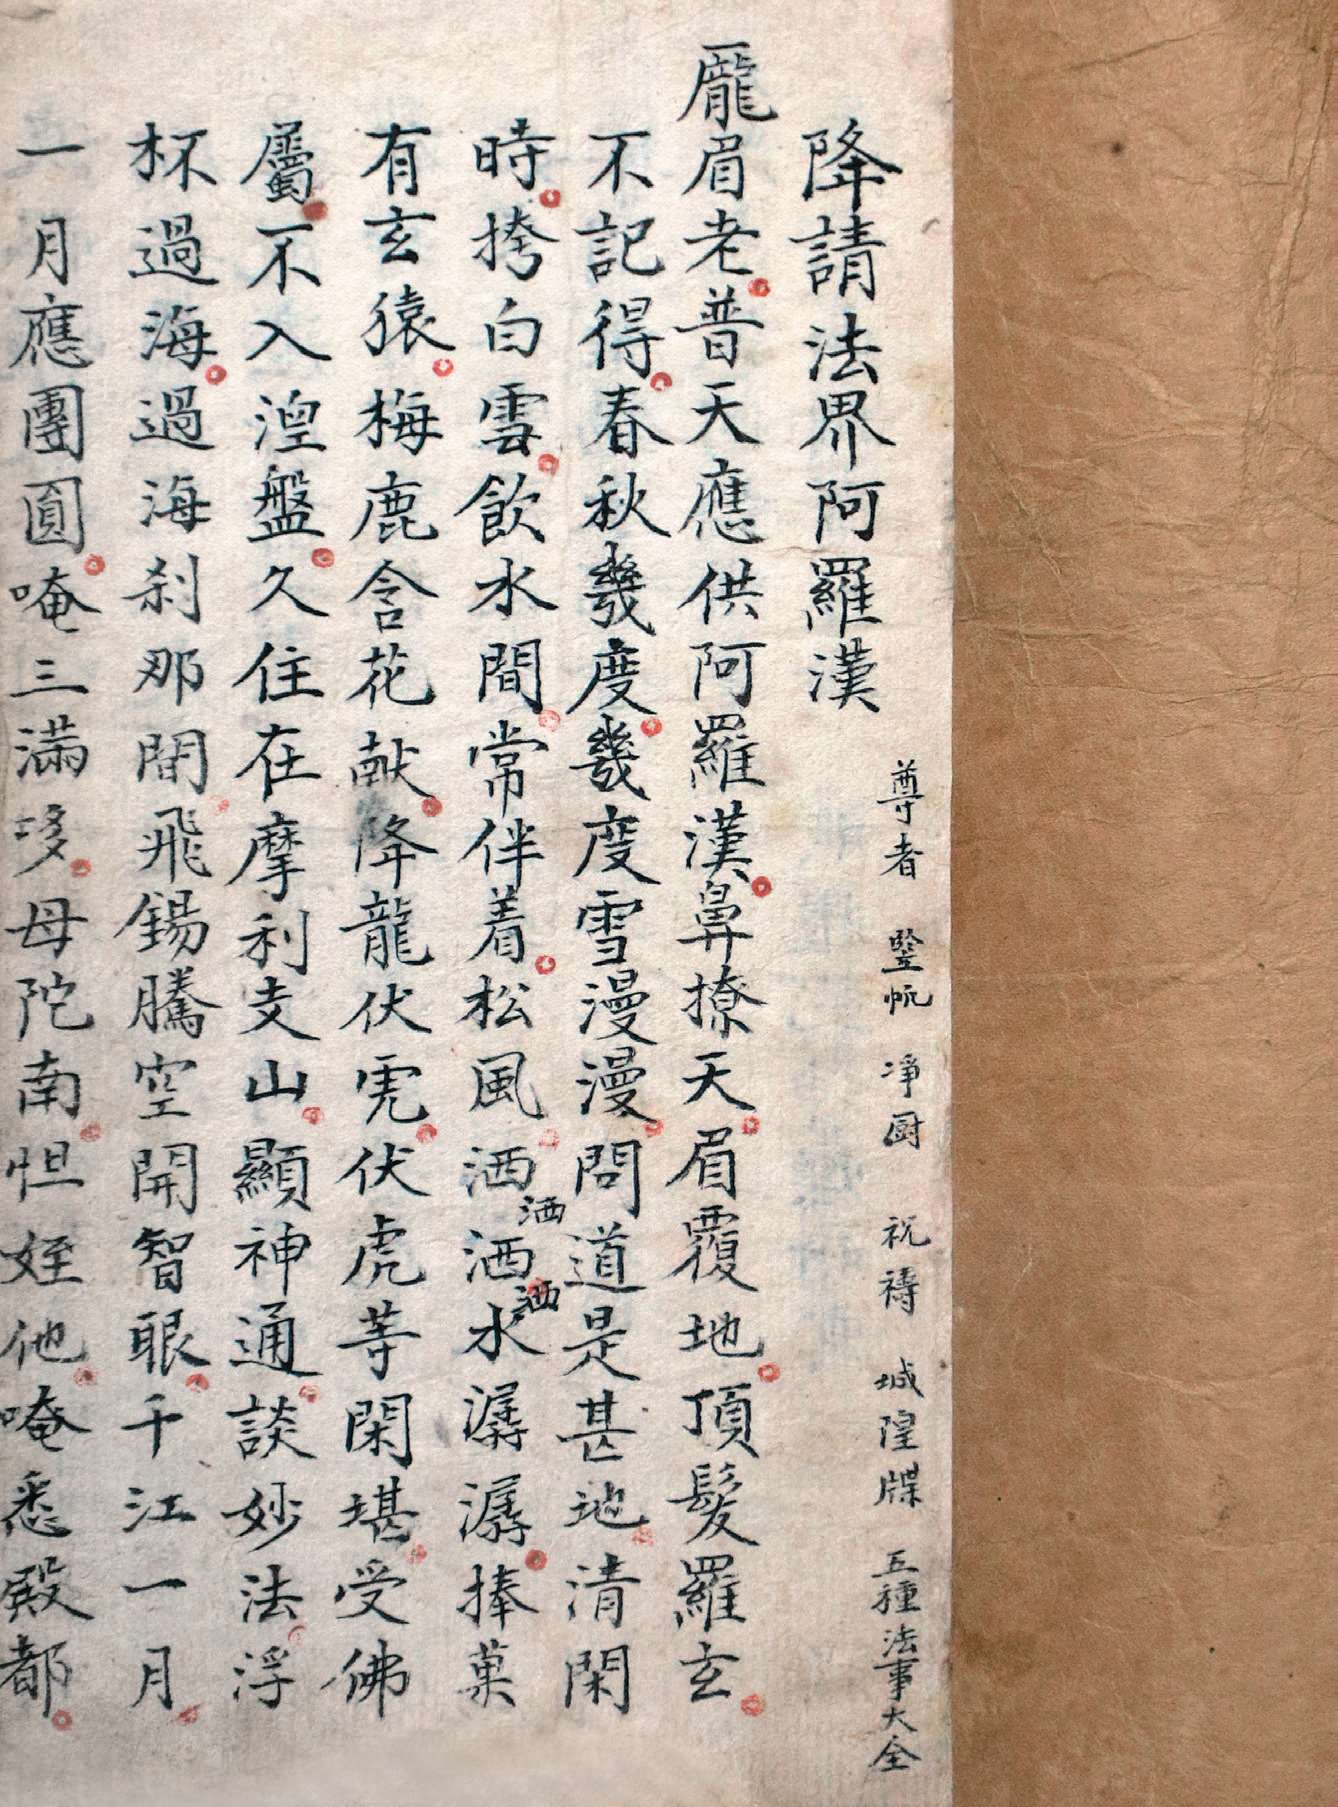 尊者 竪帆 净厨 祝禱 城隍牒 五種法事大全
降請法界阿羅漢
龐眉老普天應供阿羅漢鼻撩天眉覆地頂髮羅玄
不記得春秋幾度幾度雪漫漫問道是甚地清閑
時挎白雲飲水間常伴着松風洒洒水潺潺捧菓
洒
洒
有玄猿梅鹿含花献降龍伏虎伏虎等閑堪受佛
屬不入湼盤久住在摩利支山顯神通談妙法浮
杯過海過海刹那間飛錫騰空開智眼千江一月
一月應團圓唵三滿哆母陀南怛姪他唵悉殿都